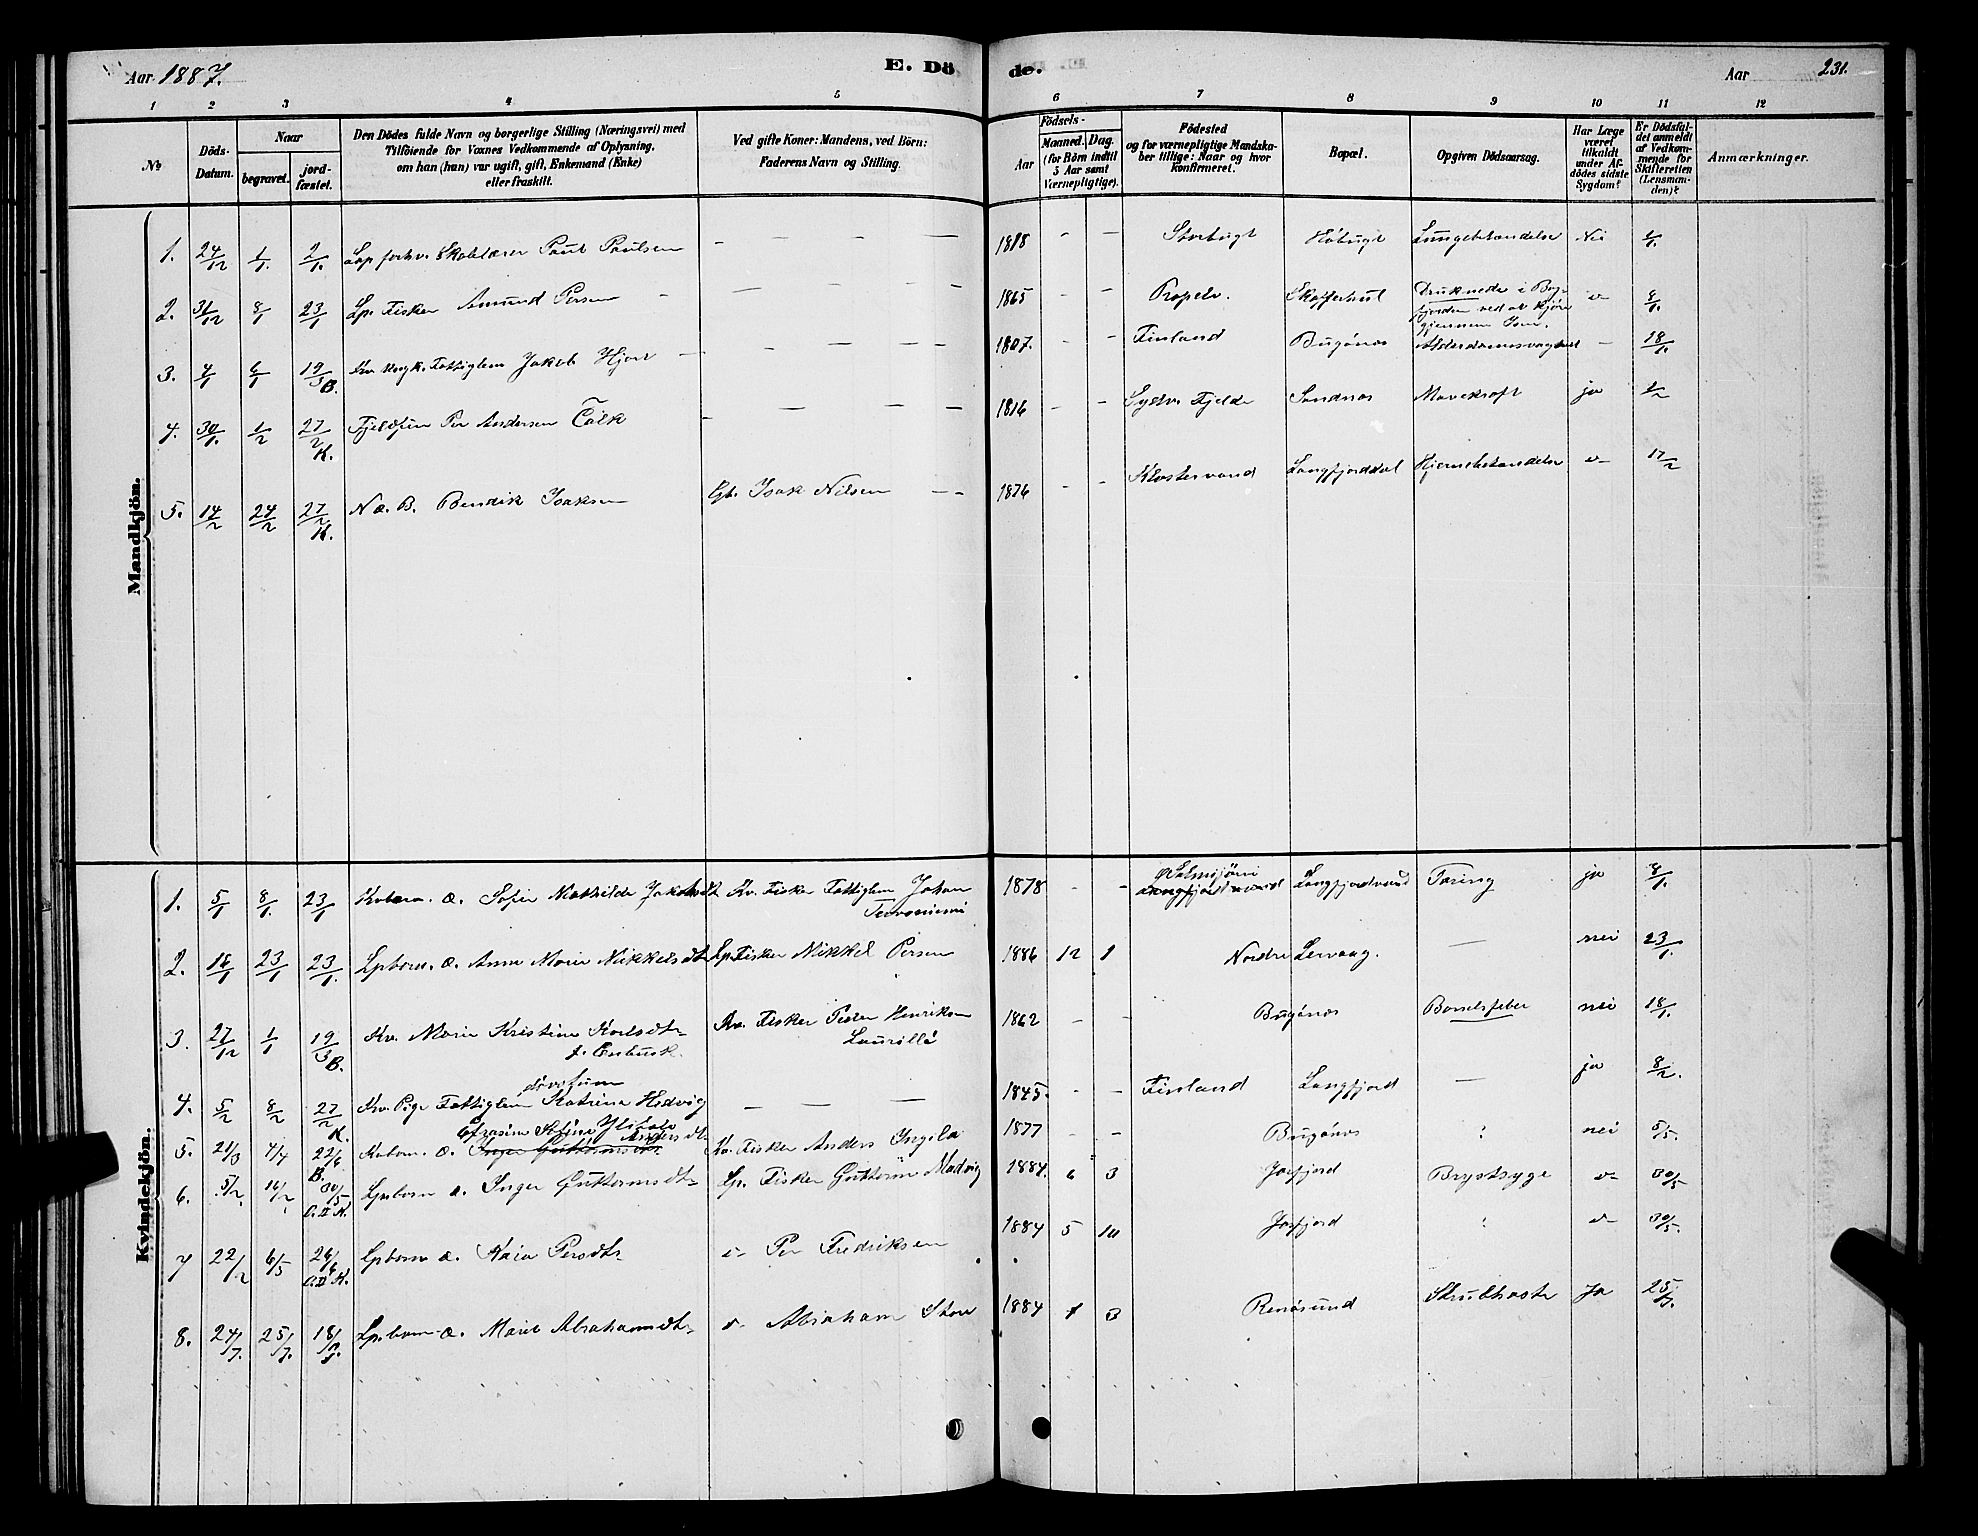 Aar 1887.
E. Dö
de.
Aar
231.
1 2 3 4 5 6 7 8 9 10 11 12
№
Döds-
Datum.
Naar
begravet.
jord-
fæstet.
Den Dödes fulde Navn og borgerlige Stilling (Næringsvei) med
Tilföiende for Voxnes Vedkommende af Oplysning,
om han (hun) var ugift, gift, Enkemand (Enke)
eller fraskilt.
Ved gifte Koner: Mandens, ved Börn:
Faderens Navn og Stilling.
Födsels-
Aar
Maaned.
Dag.
(for Börn indtil
5 Aar samt
Værnepligtige).
Födested
og for værnepligtige Mandska-
ber tillige: Naar og hvor
konfirmeret.
Bopæl.
Opgiven Dödsaarsag.
Har Læge
været
tilkaldt
under Af-
dödes sidste
Sygdom?
Er Dödsfal-
det anmeldt
af Vedkom-
mende for
Skifteretten
(Lensman-
den)?
Anmærkninger.
Mandkjön.
1. 24/12 1/1 2/1. Lap forhv. Skolelærer Paul Paulsen — — — — 1818 — — Storbugt Höbugt Lungebetændelse Nei
2. 31/12 8/1 23/1 Lp. Fisker Amund Persen — — — — 1865 - - Ropelv. Skafferhul Druknede i Bøg-
fjorden ved at kjöre
gjennem Isen. 8/1.
3. 19/3 B. Kv. Fattiglem Jakob Hjort — — — — 1807. - - Finland Bugönes Alderdomssvaghed — 18/1.
4. 30/1. 1/2 27/2 K. Fjeldfin Per Andersen — — — — 1816 - - Sydv. Fjelde Sandnes ja 1/2
5. 14/2 24/2 27/2 K. N. æ. B. Bendik Isaksen Isak Nilsen - - 1876 - - Klostervand Langfjorddal Hjernebetændelse 17/2
Kvindekjön.
1. 5/1 8/1. 23/1 Kvbarn. æ. Sofie Mathilde Kv. Fisker Fattiglem Johan
1878 - - Langfjordvand Langfjordvand Tæring ja 8/1.
2. 18/1 23/1 23/1. Lpbarn. æ. Anne Marie Nikkelsdtr Lp. Fisker Nikkel Persen 1886 12 1 Nordre Lervaag. — nei 23/1.
3. 27/12 1/1 19/3 B. Kv. Marie Kristine Karlsdtr
f. Enbusk.
Kv. Fisker Peder Henriksen
1862 - - Bugönes Barselsfeber nei 18/1.
4. 5/2 8/2 27/2 K. Kv. Pige Fattiglem Katrina Hedvig — — — 1845. - - Finland Langfjord — ja 8/2.
5. 21/3 4/4 22/6 B. Kvbarn. æ. Inger Guttormsdtr Andersdtr Kv. Fisker Anders Ingila 1877 - - Bugönes : nei 5/5.
6. 5/2. 16/2 30/5 Lpbarn æ. Inger Guttormsdtr Lp. Fisker Guttorm Madvig 1884. 6 3 Jarfjord Brystsyge 30/5
7 22/2 6/5 26/6 Lpbarn æ. Kaia Persdtr Per Fredriksen 1884 5 10 Jarfjord : 30/5.
8. 24/7. 25/7. Lpbarn æ. Marit Abrahamsdtr Abraham 1884 3 Renösund Strubhoste Ja